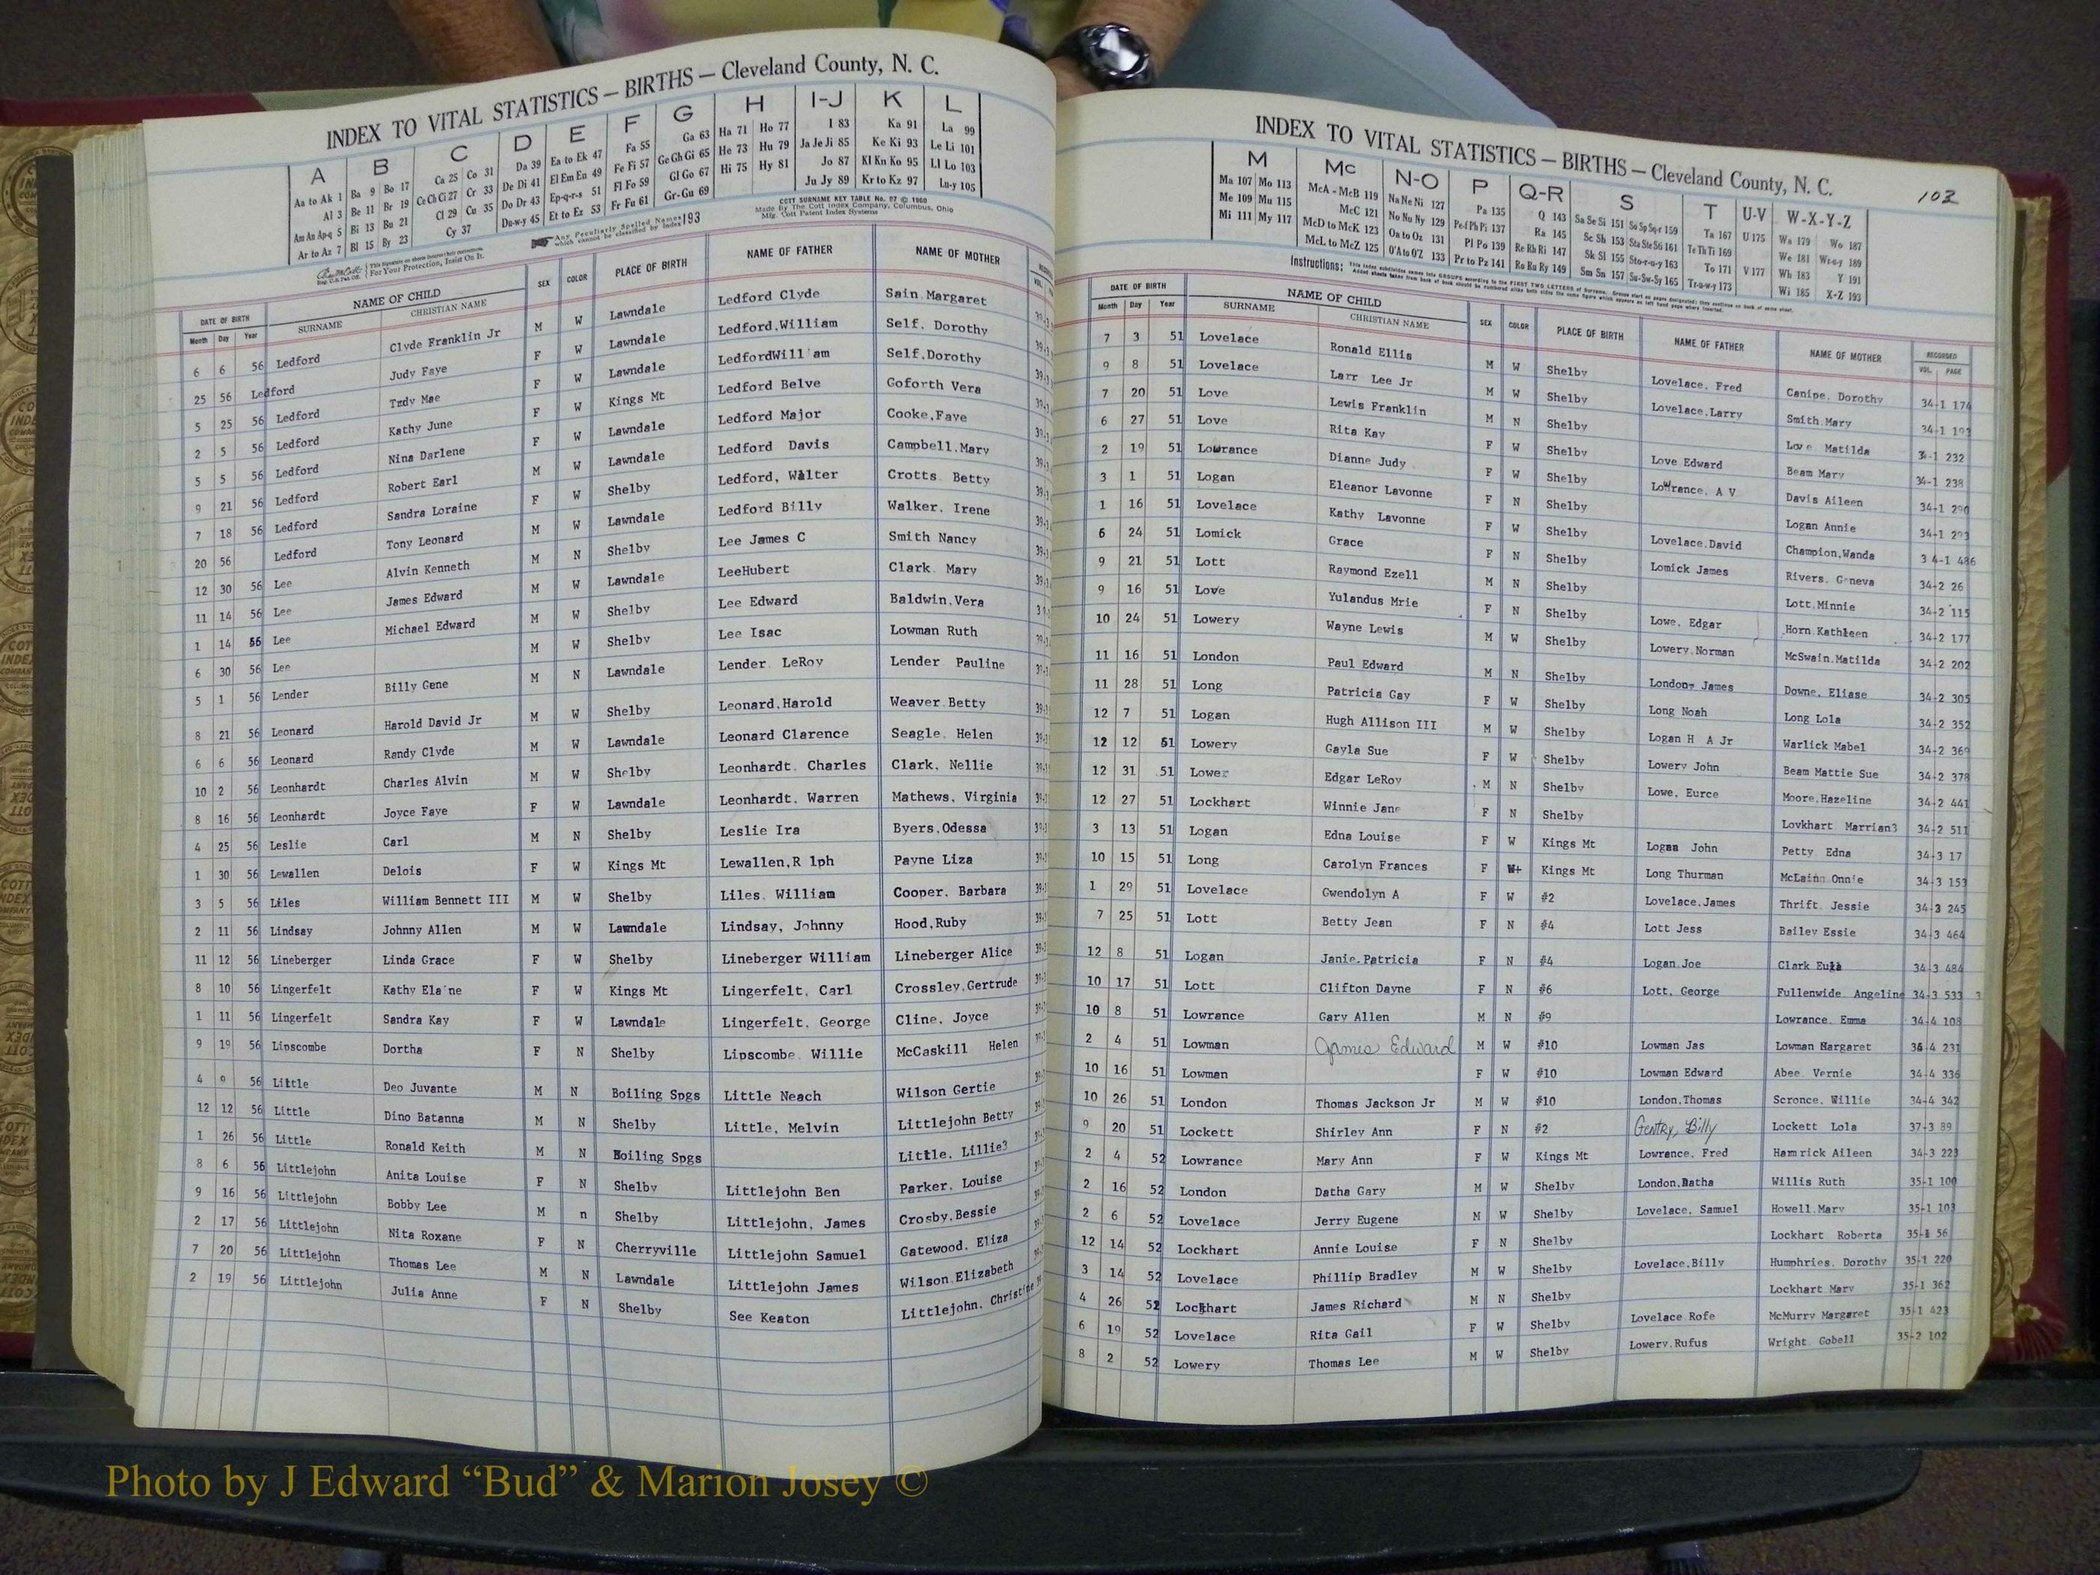 INDEX TO VITAL STATISTICS — BIRTHS — Cleveland County, N. C.
A B C D E F G H I-J K L
Aa to Ak 1 Ba 9 Bo 17 Ca 25 Co 31 Da 39 Ea to Ek 47 Fa 55 Ga 63 Ha 71 Ho 77 I 83 Ka 91 La 99
Al 3 Be 11 Br 19 Ce Ch Ci 27 Cr 33 De Di 41 El Em En 49 Fe Fi 57 Ge Gh Gi 65 He 73 Hu 79 Ja Je Ji 85 Ke Ki 93 Le Li 101
Am An Ap-q 5 Bi 13 Bu 21 Cl 29 Cu 35 Do Dr 43 Ep-q-r-s 51 Fl Fo 59 Gl Go 67 Hi 75 Hy 81 Jo 87 Kl Kn Ko 95 Ll Lo 103
Ar to Az 7 Bl 15 By 23 Cy 37 Du-w-y 45 Et to Ez 53 Fr Fu 61 Gr-Gu 69 Ju Jy 89 Kr to Kz 97 Lu-y 105
COTT SURNAME KEY TABLE No. 07 © 1960
Made By The Cott Index Company, Columbus, Ohio
Mfg. Cott Patent Index Systems
Any Peculiarly Spelled Names which cannot be classified by Index 193
This signature on sheets insures their correctness.
For Your Protection, Insist On It.
DATE OF BIRTH NAME OF CHILD SEX COLOR PLACE OF BIRTH NAME OF FATHER NAME OF MOTHER
Month Day Year SURNAME CHRISTIAN NAME VOL.
6 6 56 Ledford Clyde Franklin Jr M W Lawndale Ledford Clyde Sain Margaret
25 56 Ledford Judy Faye F W Lawndale Ledford,William Self, Dorothy
5 25 56 Ledford Trdy Mae F W Lawndale LedfordWill am Self,Dorothy
2 5 56 Ledford Kathy June F W Kings Mt Ledford Belve Goforth Vera
5 5 56 Ledford Nina Darlene F W Lawndale Ledford Major Cooke,Faye
9 21 56 Ledford Robert Earl M W Lawndale Ledford Davis Campbell,Mary
7 18 56 Ledford Sandra Loraine F W Shelby Ledford, Walter Crotts Betty
20 56 Ledford Tony Leonard M W Lawndale Ledford Billy Walker, Irene
12 30 56 Lee Alvin Kenneth M N Shelby Lee James C Smith Nancy
11 14 56 Lee James Edward M W Lawndale LeeHubert Clark Mary
1 14 56 Lee Michael Edward M W Shelby Lee Edward Baldwin,Vera
6 30 56 Lee M W Shelby Lee Isac Lowman Ruth
5 1 56 Lender Billy Gene M N Lawndale Lender LeRoy Lender Pauline
8 21 56 Leonard Harold David Jr M W Shelby Leonard,Harold Weaver Betty
6 6 56 Leonard Randy Clyde M W Lawndale Leonard Clarence Seagle, Helen
10 2 56 Leonhardt Charles Alvin M W Shelby Leonhardt. Charles Clark, Nellie
8 16 56 Leonhardt Joyce Faye F W Lawndale Leonhardt, Warren Mathews, Virginia
4 25 56 Leslie Carl M N Shelby Leslie Ira Byers,Odessa
1 30 56 Lewallen Delois F W Kings Mt Lewallen,R lph Payne Liza
3 5 56 Liles William Bennett III M W Shelby Liles, William Cooper, Barbara
2 11 56 Lindsay Johnny Allen M W Lawndale Lindsay, Johnny Hood,Ruby
11 12 56 Lineberger Linda Grace F W Shelby Lineberger William Lineberger Alice
8 10 56 Lingerfelt Kathy Ela ne F W Kings Mt Lingerfelt, Carl Crossley,Gertrude
1 11 56 Lingerfelt Sandra Kay F W Lawndale Lingerfelt, George Cline, Joyce
9 19 56 Lipscombe Dortha F N Shelby Lipscombe, Willie McCaskill Helen
4 9 56 Little Deo Juvante M N Boiling Spgs Little Neach Wilson Gertie
12 12 56 Little Dino Batanna M N Shelby Little, Melvin Littlejohn Betty
1 26 56 Little Ronald Keith M N Boiling Spgs Little, Lillie3
8 6 56 Littlejohn Anita Louise F N Shelby Littlejohn Ben Parker, Louise
9 16 56 Littlejohn Bobby Lee M n Shelby Littlejohn, James Crosby,Bessie
2 17 56 Littlejohn Nita Roxane F N Cherryville Littlejohn Samuel Gatewood, Eliza
7 20 56 Littlejohn Thomas Lee M N Lawndale Littlejohn James Wilson,Elizabeth
2 19 56 Littlejohn Julia Anne F N Shelby See Keaton Littlejohn, Christine
INDEX TO VITAL STATISTICS — BIRTHS — Cleveland County, N. C. 103
M Mc N-O P Q-R S T U-V W-X-Y-Z
Ma 107 Mo 113 McA - McB 119 Na Ne Ni 127 Pa 135 Q 143 Sa Se Si 151 So Sp Sq-r 159 Ta 167 U 175 Wa 179 Wo 187
Me 109 Mu 115 McC 121 No Nu Ny 129 Pe-f Ph Pi 137 Ra 145 Sc Sh 153 Sta Ste Sti 161 Te Th Ti 169 We 181 Wr-u-y 189
Mi 111 My 117 McD to McK 123 Oa to Oz 131 Pl Po 139 Re Rh Ri 147 Sk Sl 155 Sto-r-u-y 163 To 171 V 177 Wh 183 Y 191
McL to McZ 125 O'A to O'Z 133 Pr to Pz 141 Ro Ru Ry 149 Sm Sn 157 Su-Sw-Sy 165 Tr-u-w-y 173 Wi 185 X-Z 193
Instructions: This Index subdivides names into GROUPS according to the FIRST TWO LETTERS of Surname. Groups start on pages designated; they continue on back of same sheet.
Added sheets taken from back of book should be numbered alike both sides the same figure which appears on left hand page where inserted.
DATE OF BIRTH NAME OF CHILD SEX COLOR PLACE OF BIRTH NAME OF FATHER NAME OF MOTHER RECORDED
Month Day Year SURNAME CHRISTIAN NAME VOL. PAGE
7 3 51 Lovelace Ronald Ellis M W Shelby Lovelace, Fred Canipe, Dorothy 34-1 174
9 8 51 Lovelace Larr Lee Jr M W Shelby Lovelace,Larry Smith,Mary 34-1 193
7 20 51 Love Lewis Franklin M N Shelby Love Matilda 34-1 232
6 27 51 Love Rita Kay F W Shelby Love Edward Beam Mary 34-1 238
2 19 51 Lowrance Dianne Judy F W Shelby Lowrance, A V Davis Aileen 34-1 290
3 1 51 Logan Eleanor Lavonne F N Shelby Logan Annie 34-1 293
1 16 51 Lovelace Kathy Lavonne F W Shelby Lovelace,David Champion,Wanda 3 4-1 486
6 24 51 Lomick Grace F N Shelby Lomick James Rivers, Geneva 34-2 26
9 21 51 Lott Raymond Ezell M N Shelby Lott,Minnie 34-2 115
9 16 51 Love Yulandus Mrie F N Shelby Lowe, Edgar Horn Kathleen 34-2 177
10 24 51 Lowery Wayne Lewis M W Shelby Lowery,Norman McSwain,Matilda 34-2 202
11 16 51 London Paul Edward M N Shelby London, James Downe, Eliase 34-2 305
11 28 51 Long Patricia Gay F W Shelby Long Noah Long Lola 34-2 352
12 7 51 Logan Hugh Allison III M W Shelby Logan H A Jr Warlick Mabel 34-2 369
12 12 51 Lowery Gayla Sue F W Shelby Lowery John Beam Mattie Sue 34-2 378
12 31 51 Lower Edgar LeRoy M N Shelby Lowe, Eurce Moore,Hazeline 34-2 441
12 27 51 Lockhart Winnie Jane F N Shelby Lovkhart Marrian3 34-2 511
3 13 51 Logan Edna Louise F W Kings Mt Logan John Petty Edna 34-3 17
10 15 51 Long Carolyn Frances F W+ Kings Mt Long Thurman McLain Onnie 34-3 153
1 29 51 Lovelace Gwendolyn A F W #2 Lovelace,James Thrift Jessie 34-3 245
7 25 51 Lott Betty Jean F N #4 Lott Jess Bailey Essie 34-3 464
12 8 51 Logan Janie,Patricia F N #4 Logan Joe Clark Eula 34-3 484
10 17 51 Lott Clifton Dayne F N #6 Lott, George Fullenwide Angeline 34-3 533
10 8 51 Lowrance Gary Allen M N #9 Lowrance, Emma 34-4 108
2 4 51 Lowman James Edward M W #10 Lowman Jas Lowman Margaret 34-4 231
10 16 51 Lowman F W #10 Lowman Edward Abee, Vernie 34-4 336
10 26 51 London Thomas Jackson Jr M W #10 London,Thomas Scronce, Willie 34-4 342
9 20 51 Lockett Shirley Ann F N #2 Gentry, Billy Lockett Lola 37-3 89
2 4 52 Lowrance Mary Ann F W Kings Mt Lowrance, Fred Hamrick Aileen 34-3 223
2 16 52 London Datha Gary M W Shelby London,Datha Willis Ruth 35-1 100
2 6 52 Lovelace Jerry Eugene M W Shelby Lovelace, Samuel Howell,Mary 35-1 103
12 14 52 Lockhart Annie Louise F N Shelby Lockhart Roberta 35-1 56
3 14 52 Lovelace Phillip Bradley M W Shelby Lovelace,Billy Humphries, Dorothy 35-1 220
4 26 52 Lockhart James Richard M N Shelby Lockhart Mary 35-1 362
6 19 52 Lovelace Rita Gail F W Shelby Lovelace Rofe McMurry Margaret 35-1 423
8 2 52 Lowery Thomas Lee M W Shelby Lowery,Rufus Wright Gobell 35-2 102
Photo by J Edward “Bud” & Marion Josey ©